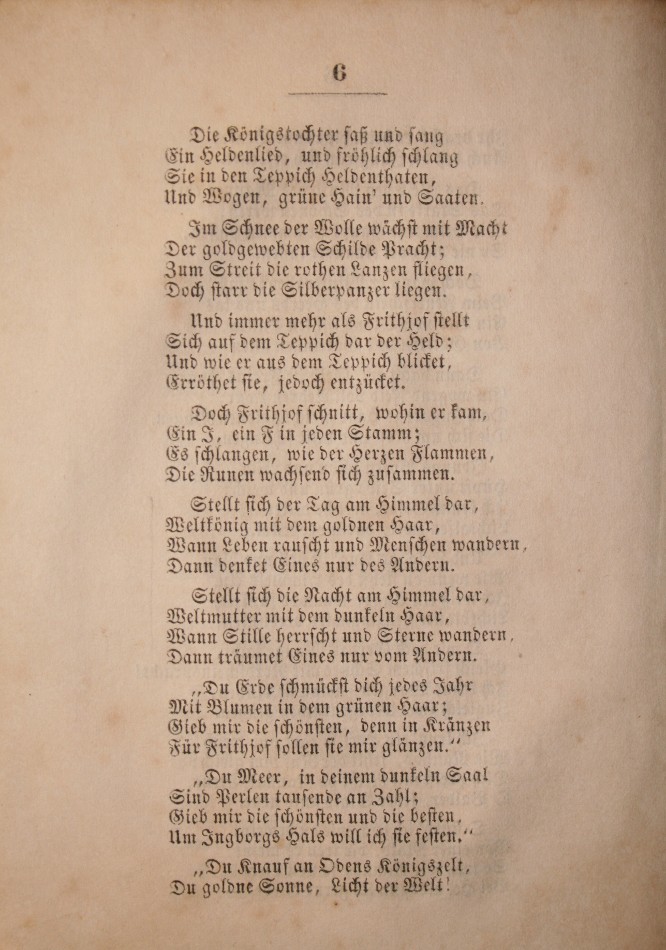 6
Die Königstochter saß und sang
Ein Heldenlied, und fröhlich schlang
Sie in den Teppich Heldenthaten,
Und Wogen, grüne Hain' und Saaten.
Im Schnee der Wolle wächst mit Macht
Der goldgewebten Schilde Pracht;
Zum Streit die rothen Lanzen fliegen,
Doch starr die Silberpanzer liegen.
Und immer mehr als Frithjof stellt
Sich auf dem Teppich dar der Held;
Und wie er aus dem Teppich blicket,
Erröthet sie, jedoch entzücket.
Doch Frithjof schnitt, wohin er kam,
Ein J, ein F in jeden Stamm;
Es schlangen, wie der Herzen Flammen,
Die Runen wachsend sich zusammen.
Stellt sich der Tag am Himmel dar,
Weltkönig mit dem goldnen Haar,
Wann Leben rauscht und Menschen wandern,
Dann denket Eines nur des Andern.
Stellt sich die Nacht am Himmel dar,
Weltmutter mit dem dunkeln Haar,
Wann Stille herrscht und Sterne wandern,
Dann träumet Eines nur vom Andern.
„Du Erde schmückst dich jedes Jahr
Mit Blumen in dem grünen Haar;
Gieb mir die schönsten, denn in Kränzen
Für Frithjof sollen sie mir glänzen.“
„Du Meer, in deinem dunkeln Saal
Sind Perlen tausende an Zahl;
Gieb mir die schönsten und die besten,
Um Ingborgs Hals will ich sie festen.“
„Du Knauf an Odens Königszelt,
Du goldne Sonne, Licht der Welt!